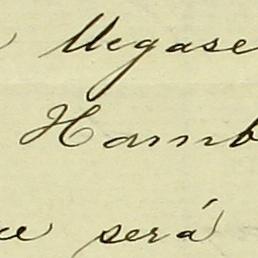 Megase
Hamb
será